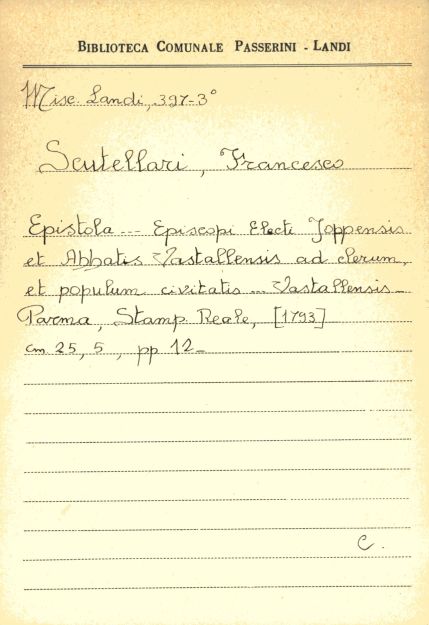 BIBLIOTECA COMUNALE PASSERINI - LANDI
Misc. Landi, 397-3°
Scutellari, Francesco
Epistola --- Episcopi Electi Joppensis
et Abbatis Vastallensis ad clerum,
et populum civitatis --- Vastallensis -
Parma, Stamp Reale, [1793]
cm 25, 5, pp 12 -
C.